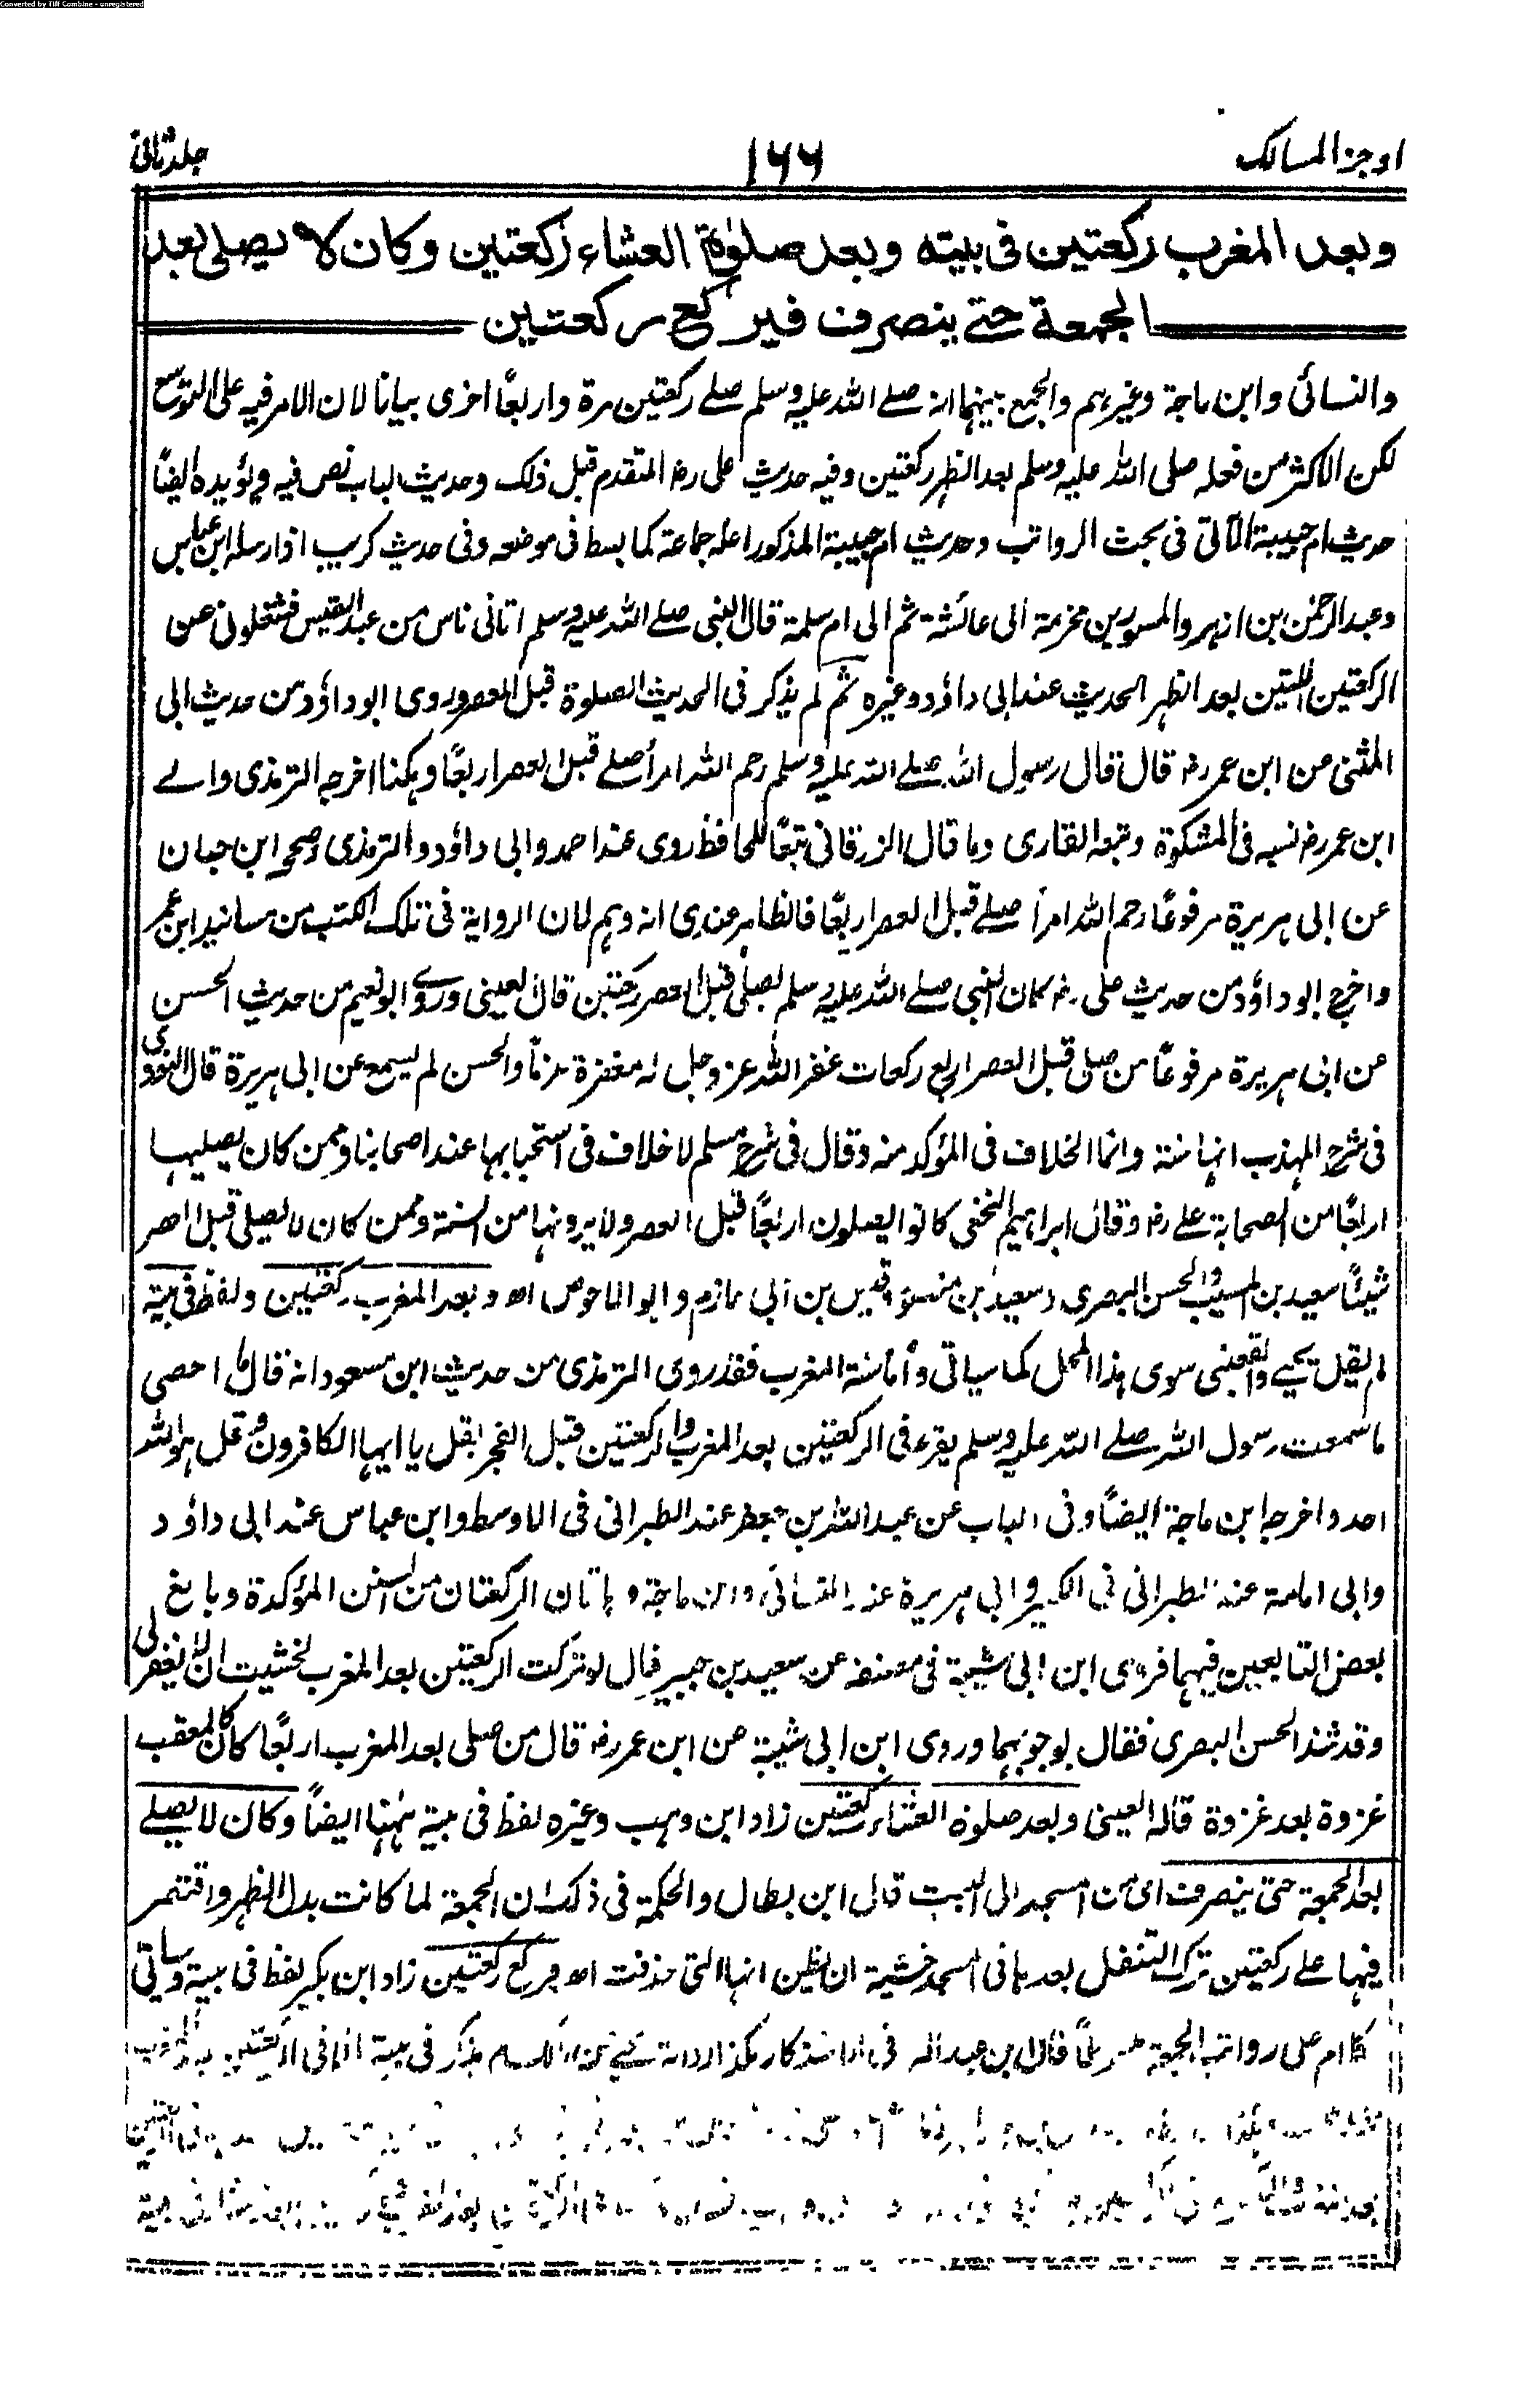 Converted by Tiff Combine - unregistered
اوجز المسالك ١٦٦ جلد ثانی
وبعد المغرب ركعتين فى بيته وبعد صلوٰة العشاء ركعتين وكان لا يصلى بعد
الجمعة حتے ينصرف فيركع ركعتين
والنسائى وابن ماجة وغيرهم والجمع بينهما انه صلے الله عليه وسلم صلے ركعتين مرة واربعًا اخرى بيانا لان الامر فيه على التوسع
لكن الاكثر من فعله صلى الله عليه وسلم بعد الظهر ركعتين وفيه حديث على رضـ المتقدم قبل ذلك وحديث الباب نص فيه ويؤيده ايضًا
حديث ام حبيبة الآتى فى بحث الرواتب وحديث ام حبيبة المذكور اعله جماعة كما بسط فى موضعه وفى حديث كريب اذ ارسله ابن عباس
وعبد الرحمٰن بن ازهر والمسور بن مخرمة الى عائشة ثم الى ام سلمة قال النبى صلے الله عليه وسلم اتانى ناس من عبد القيس فشغلونى عن
الركعتين اللتين بعد الظهر الحديث عند ابى داؤد وغيره ثم لم يذكر فى الحديث الصلوة قبل العصر وروى ابو داؤد من حديث ابى
المثنى عن ابن عمر رضـ قال قال رسول الله صلے الله عليه وسلم رحم الله امرأ صلے قبل العصر اربعًا وهكذا اخرجه الترمذى والے
ابن عمر رضـ نسبه فى المشكوة وتبعه القارى وما قال الزرقانى تبعًا للحافظ روى عند احمد وابى داؤد والترمذى وصححه ابن حبان
عن ابى هريرة مرفوعًا رحم الله امرأ صلے قبل العصر اربعًا فالظاهر عندى انه وهم لان الرواية فى تلك الكتب من مسانيد ابن عمر
واخرج ابو داؤد من حديث على رضـ كان النبى صلے الله عليه وسلم يصلى قبل العصر ركعتين قال العينى وروے ابو نعيم من حديث الحسن
عن ابى هريرة مرفوعًا من صلى قبل العصر اربع ركعات غفر الله عزوجل له مغفرة عزمًا والحسن لم يسمع عن ابى هريرة قال النووى
فى شرح المهذب انها سنة وانما الخلاف فى المؤكد منه وقال فى شرح مسلم لا خلاف فى استحبابها عند اصحابنا وممن كان يصليها
اربعًا من الصحابة على رضـ وقال ابراهيم النخعى كانوا يصلون اربعًا قبل العصر ولا يرونها من السنة وممن كان لا يصلى قبل العصر
شيئًا سعيد بن المسيب والحسن البصرى وسعيد بن منصور وقيس بن ابى حازم وابو الاحوص اھ وبعد المغرب ركعتين ولفظ فى بيته
لم يقل يحيے والقعنبى سوى هذا المحل كما سياتى واما سنة المغرب فقد روى الترمذى من حديث ابن مسعود انه قال ما احصى
ما سمعت رسول الله صلے الله عليه وسلم يقرء فى الركعتين بعد المغرب والركعتين قبل الفجر بقل يا ايها الكافرون وقل هو الله
احد واخرجه ابن ماجة ايضًا وفى الباب عن عبد الله بن جعفر عند الطبرانى فى الاوسط وابن عباس عند ابى داؤد
وابى امامة عند الطبرانى فى الكبير وابى هريرة عند النسائى وابن ماجة وهاتان الركعتان من السنن المؤكدة وبالغ
بعض التابعين فيهما فروى ابن ابى شيبة فى مصنفه عن سعيد بن جبير قال لو تركت الركعتين بعد المغرب لخشيت ان لا يغفر لى
وقد شذ الحسن البصرى فقال بوجوبهما وروى ابن ابى شيبة عن ابن عمر رضـ قال من صلى بعد المغرب اربعًا كان كالمعقب
غزوة بعد غزوة قاله العينى وبعد صلوة العشاء ركعتين زاد ابن وهب وغيره لفظ فى بيته ههنا ايضًا وكان لا يصلے
بعد الجمعة حتى ينصرف اى من المسجد الى البيت قال ابن بطال والحكمة فى ذلك ان الجمعة لما كانت بدل الظهر واقتصر
فيها على ركعتين ترك التنفل بعدها فى المسجد خشية ان يظن انها التى حذفت اھ فيركع ركعتين زاد ابن بكير لفظ فى بيته وسياتى
على رواتب الجمعة قال ابن عبد البر هكذا فى بيته الا فى الركعتين